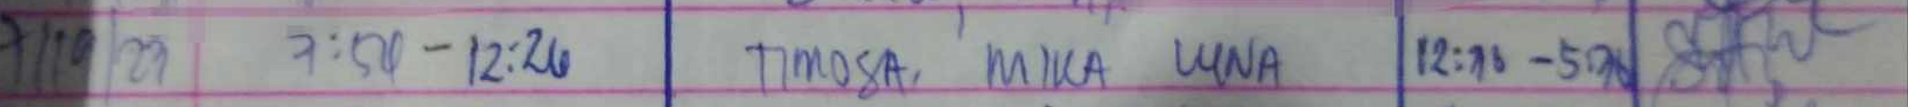 7/19/23 7:54 - 12:26 TIMOSA, MIKA LUNA 12:26 -